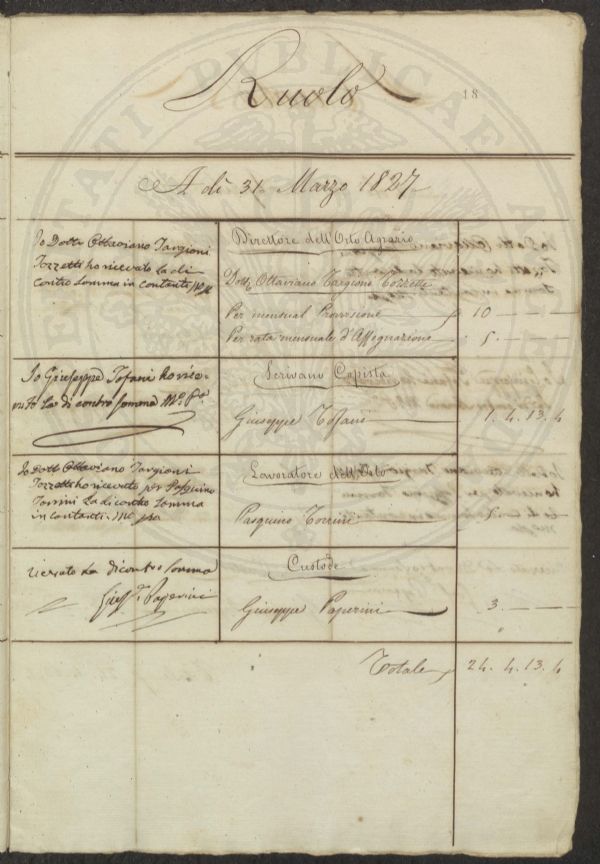 Ruolo
18
A dì 31. Marzo 1827
Io Dott. Ottaviano Targioni
Tozzetti ho ricevuto la di
contro Somma in contanti
Direttore dell'Orto Agrario
Dott. Ottaviano Targioni Tozzetti
Per mensual Provisione 10 — —
Per rata mensuale d'Assegnazione 5 — —
Io Giuseppe Tofani ho rice-
vuto la di contro somma
Scrivano Copista
Giuseppe Tofani 1. 4. 13. 4
Io Dott. Ottaviano Targioni
Tozzetti ho ricevuto per Pasquino
Torrini La di contro Somma
in contanti
Lavoratore dell'Orto
Pasquino Torrini
Custode
la di contro somma
Giuse. Paperini
Giuseppe Paperini 3. — —
Totale 24. 4. 13. 4